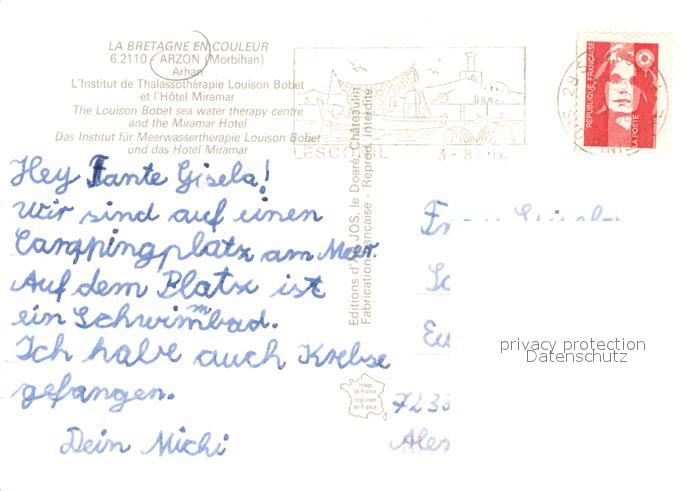 LA BRETAGNE EN COULEUR
6.2110 - ARZON (Morbihan)
Arhan
L'Institut de Thalassothérapie Louison Bobet
et l'Hôtel Miramar
The Louison Bobet sea water therapy centre
and the Miramar Hotel
Das Institut für Meerwassertherapie Louison Bobet
und das Hotel Miramar
LESCONIL
REPUBLIQUE FRANÇAISE
LA POSTE
29
Hey Tante Gisela!
Wir sind auf einen
Campingplatz am Meer.
Auf dem Platz ist
ein Schwimmbad.
Ich habe auch Krebse
gefangen.
Dein Michi
Editions d'Art JOS, le Doaré, Châteaulin
Fabrication Française - Reprod. Interdite
Image
de France
Imprimée
en France
Frau Gisela
privacy protection
Datenschutz